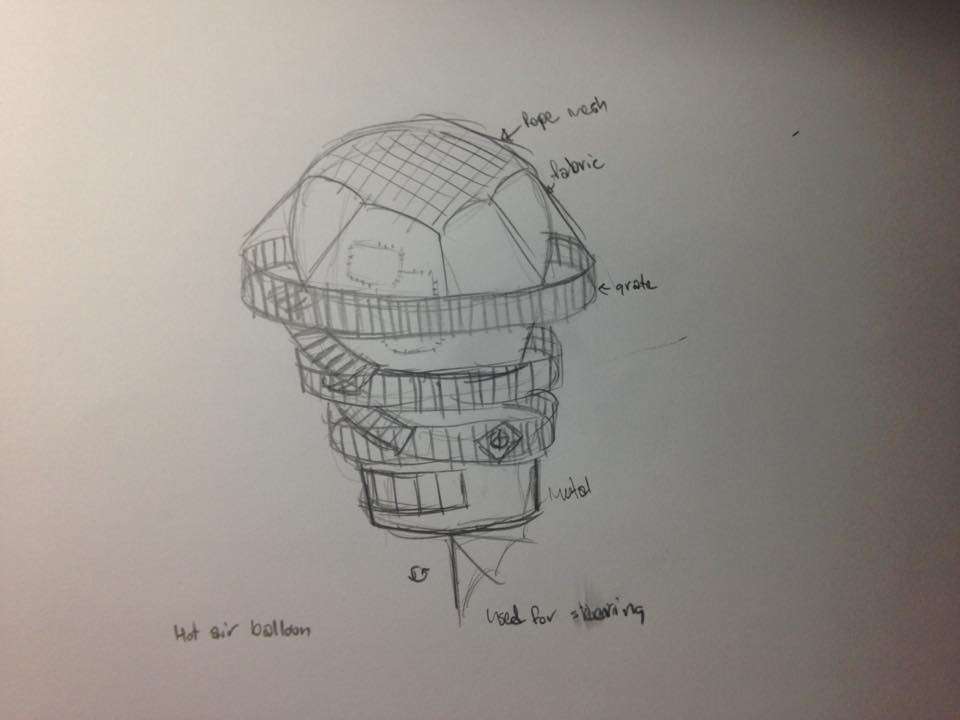 Rope mesh
fabric
grate
Metal
Used for stearing
Hot air balloon